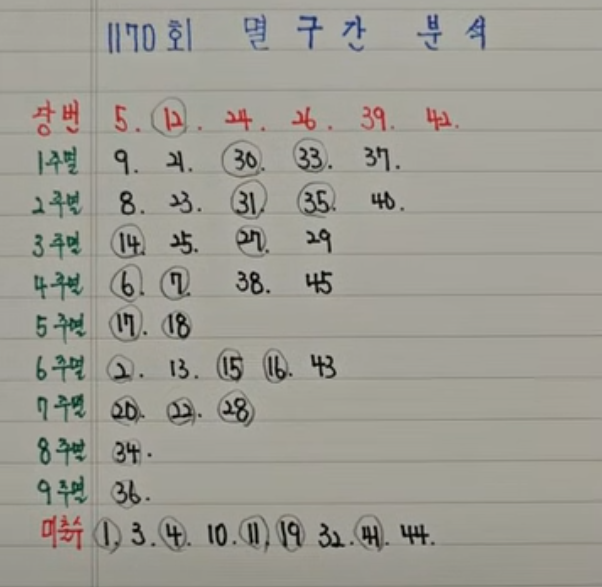 1170회 멸 구간 분석
당번 5. 12. 24. 26. 39. 42.
1주멸 9. 21. 30. 33. 37.
2주멸 8. 23. 31. 35. 40.
3주멸 14. 25. 27. 29
4주멸 6. 7. 38. 45
5주멸 17. 18
6주멸 2. 13. 15 16. 43
7주멸 20. 22. 28
8주멸 34.
9주멸 36.
미출수 1, 3. 4. 10. 11, 19 32. 41. 44.